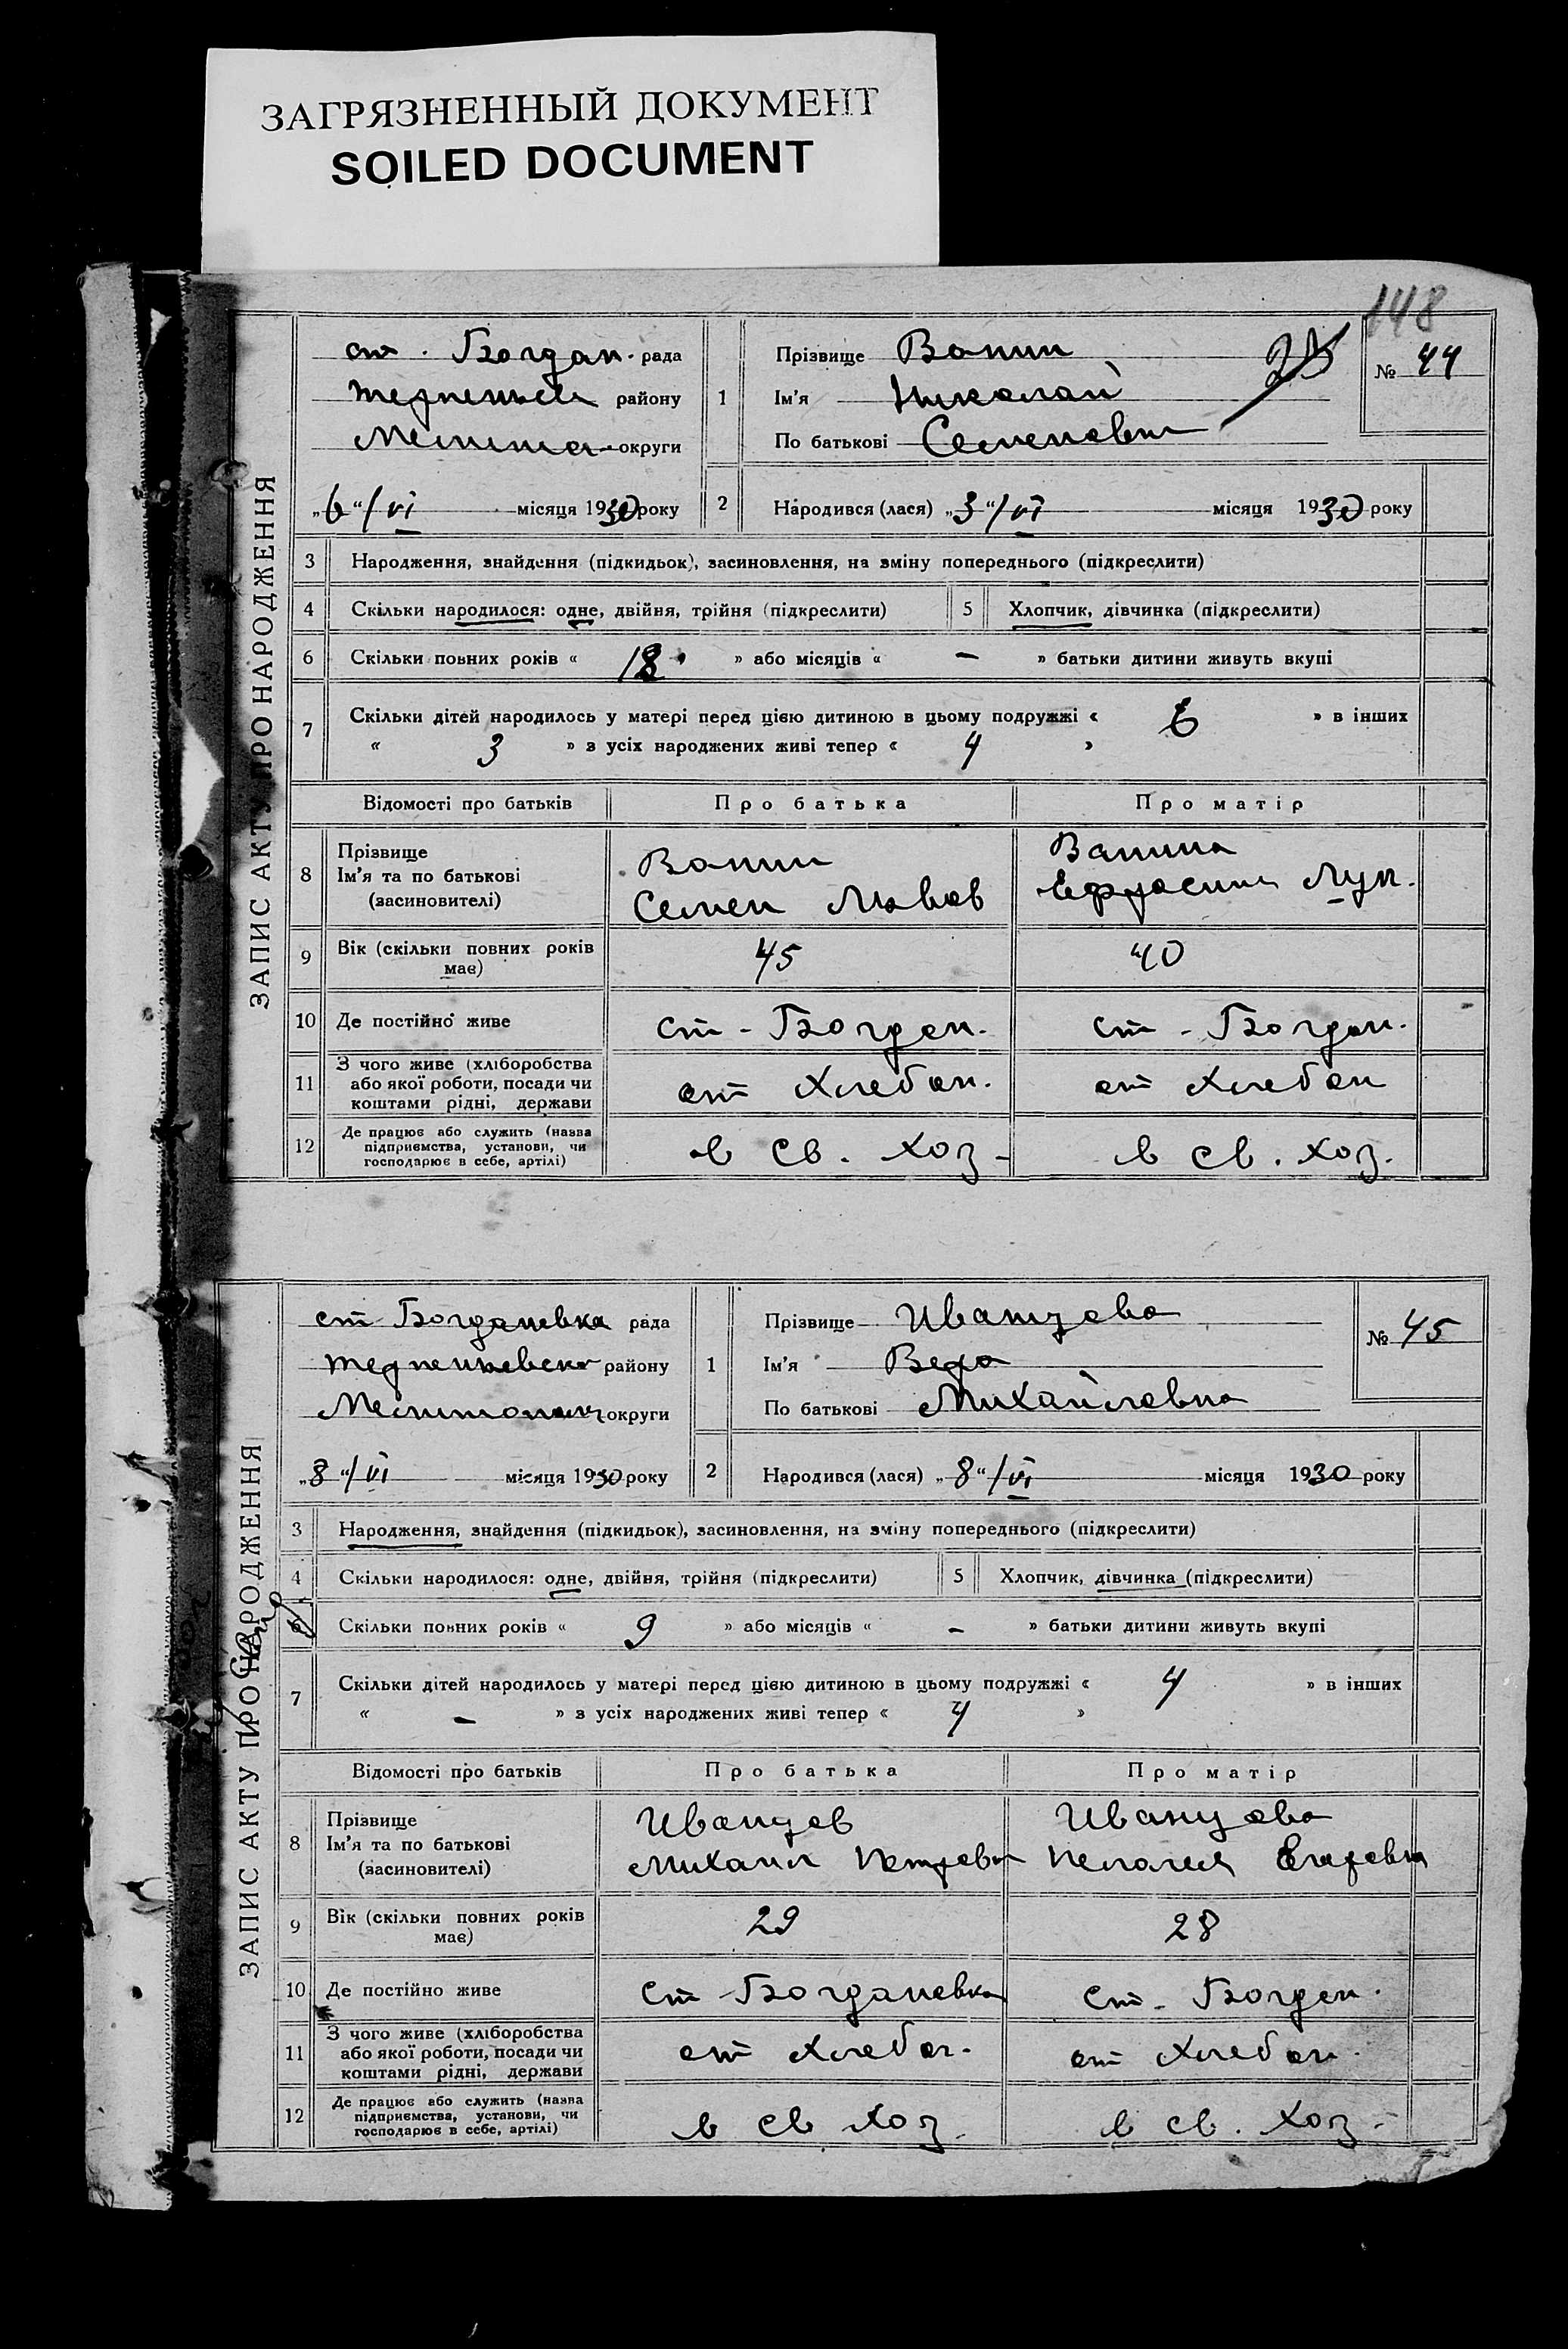 ЗАГРЯЗНЕННЫЙ ДОКУМЕНТ
SOILED DOCUMENT
148
ЗАПИС АКТУ ПРО НАРОДЖЕННЯ
ст. Богдан. рада
району
округи
„6“/VI місяця 1930 року
1
Прізвище Ванин
Ім'я Николай
По батькові Семенович
№ 44
2 Народився (лася) „3“/VI місяця 1930 року
3 Народження, знайдення (підкидьок), засиновлення, на зміну попереднього (підкреслити)
4 Скільки народилося: одне, двійня, трійня (підкреслити) 5 Хлопчик, дівчинка (підкреслити)
6 Скільки повних років « 18 » або місяців « — » батьки дитини живуть вкупі
7 Скільки дітей народилось у матері перед цією дитиною в цьому подружжі « 6 » в інших
« 3 » з усіх народжених живі тепер « 4 »
Відомості про батьків Про батька Про матір
8 Прізвище
Ім'я та по батькові
(засиновителі)
Ванин
Семен Львов
Ванина
Ефросин Лук.
9 Вік (скільки повних років має) 45 40
10 Де постійно живе ст - Богдан. ст - Богдан.
11 З чого живе (хліборобства
або якої роботи, посади чи
коштами рідні, держави
от Хлебоп. от Хлебоп
12 Де працює або служить (назва
підприємства, установи, чи
господарює в себе, артілі)
в св. хоз - в св. хоз.
ЗАПИС АКТУ ПРО НАРОДЖЕННЯ
ст Богдановка рада
району
округи
„8“/VI місяця 1930 року
1
Прізвище Иванцова
Ім'я Вера
По батькові Михайловна
№ 45
2 Народився (лася) „8“/VI місяця 1930 року
3 Народження, знайдення (підкидьок), засиновлення, на зміну попереднього (підкреслити)
4 Скільки народилося: одне, двійня, трійня (підкреслити) 5 Хлопчик, дівчинка (підкреслити)
6 Скільки повних років « 9 » або місяців « – » батьки дитини живуть вкупі
7 Скільки дітей народилось у матері перед цією дитиною в цьому подружжі « 4 » в інших
« – » з усіх народжених живі тепер « 4 »
Відомості про батьків Про батька Про матір
8 Прізвище
Ім'я та по батькові
(засиновителі)
Иванцов
Михаил Петрович
Иванцова
Пелагея Егоровна
9 Вік (скільки повних років має) 29 28
10 Де постійно живе ст - Богдановка ст - Богдан.
11 З чого живе (хліборобства
або якої роботи, посади чи
коштами рідні, держави
от Хлебоп. от Хлебоп.
12 Де працює або служить (назва
підприємства, установи, чи
господарює в себе, артілі)
в св хоз. в св. хоз -